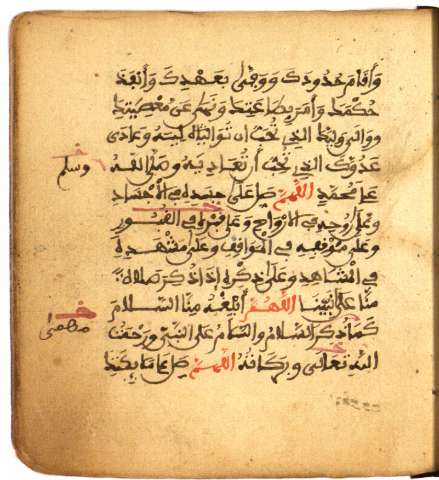 وَأَقَامَ حُدُودَكَ وَوَفَّى بِعَهْدِكَ وَأَنْفَذَ
حُكْمَكَ وَأَمَرَ بِطَاعَتِكَ وَنَهَى عَنْ مَعْصِيَتِكَ
وَوَالَى وَلِيَّكَ الَّذِي تُحِبُّ أَنْ تُوَالِيَهُ وَعَادَى
عَدُوَّكَ الَّذِي تُحِبُّ أَنْ تُعَادِيَهُ وَصَلَّى اللَّهُ
وسلم
عَلَى مُحَمَّدٍ اللَّهُمَّ صَلِّ عَلَى جَسَدِهِ فِي الْأَجْسَادِ
وَعَلَى رُوحِهِ فِي الْأَرْوَاحِ وَعَلَى قَبْرِهِ فِي الْقُبُورِ
وَعَلَى مَوْقِفِهِ فِي الْمَوَاقِفِ وَعَلَى مَشْهَدِهِ
فِي الْمَشَاهِدِ وَعَلَى ذِكْرِهِ إِذَا ذُكِرَ صَلَاةً
مِنَّا عَلَى نَبِيِّنَا اللَّهُمَّ أَبْلِغْهُ مِنَّا السَّلَامَ
كَمَا ذُكِرَ السَّلَامُ وَالسَّلَامُ عَلَى النَّبِيِّ وَرَحْمَتُ
اللَّهِ تَعَالَى وَبَرَكَاتُهُ اللَّهُمَّ صَلِّ عَلَى